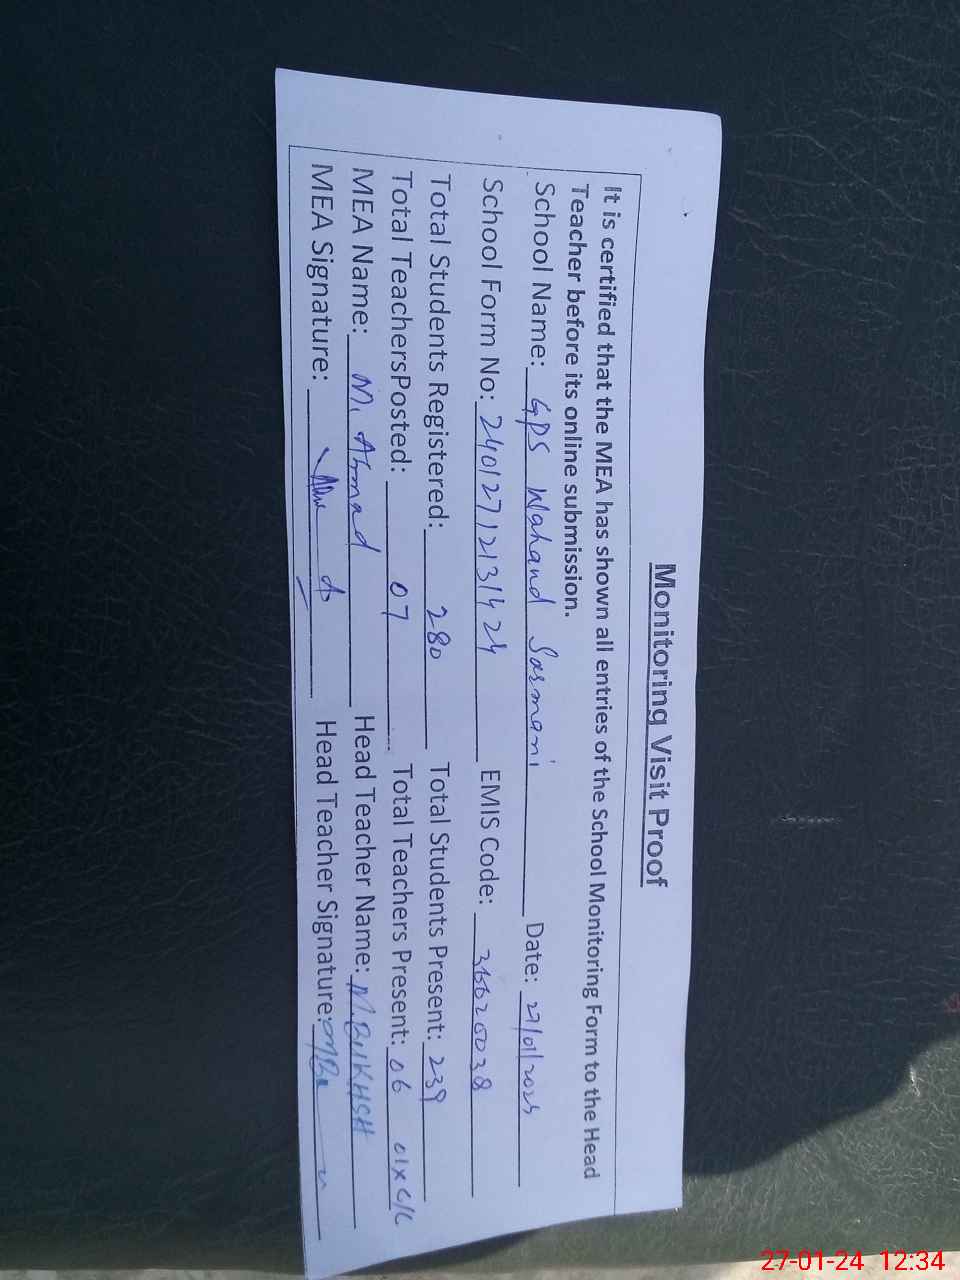 Monitoring Visit Proof
It is certified that the MEA has shown all entries of the School Monitoring Form to the Head
Teacher before its online submission.
School Name: GPS Wahand Sasmani Date: 27/01/2024
School Form No: 24012712131424 EMIS Code:
Total Students Registered: 280 Total Students Present: 239
Total TeachersPosted: 07 Total Teachers Present: 06 01x C/L
MEA Name: M. Ahmad Head Teacher Name: M.BUKHSH
MEA Signature: Head Teacher Signature:
27-01-24 12:34